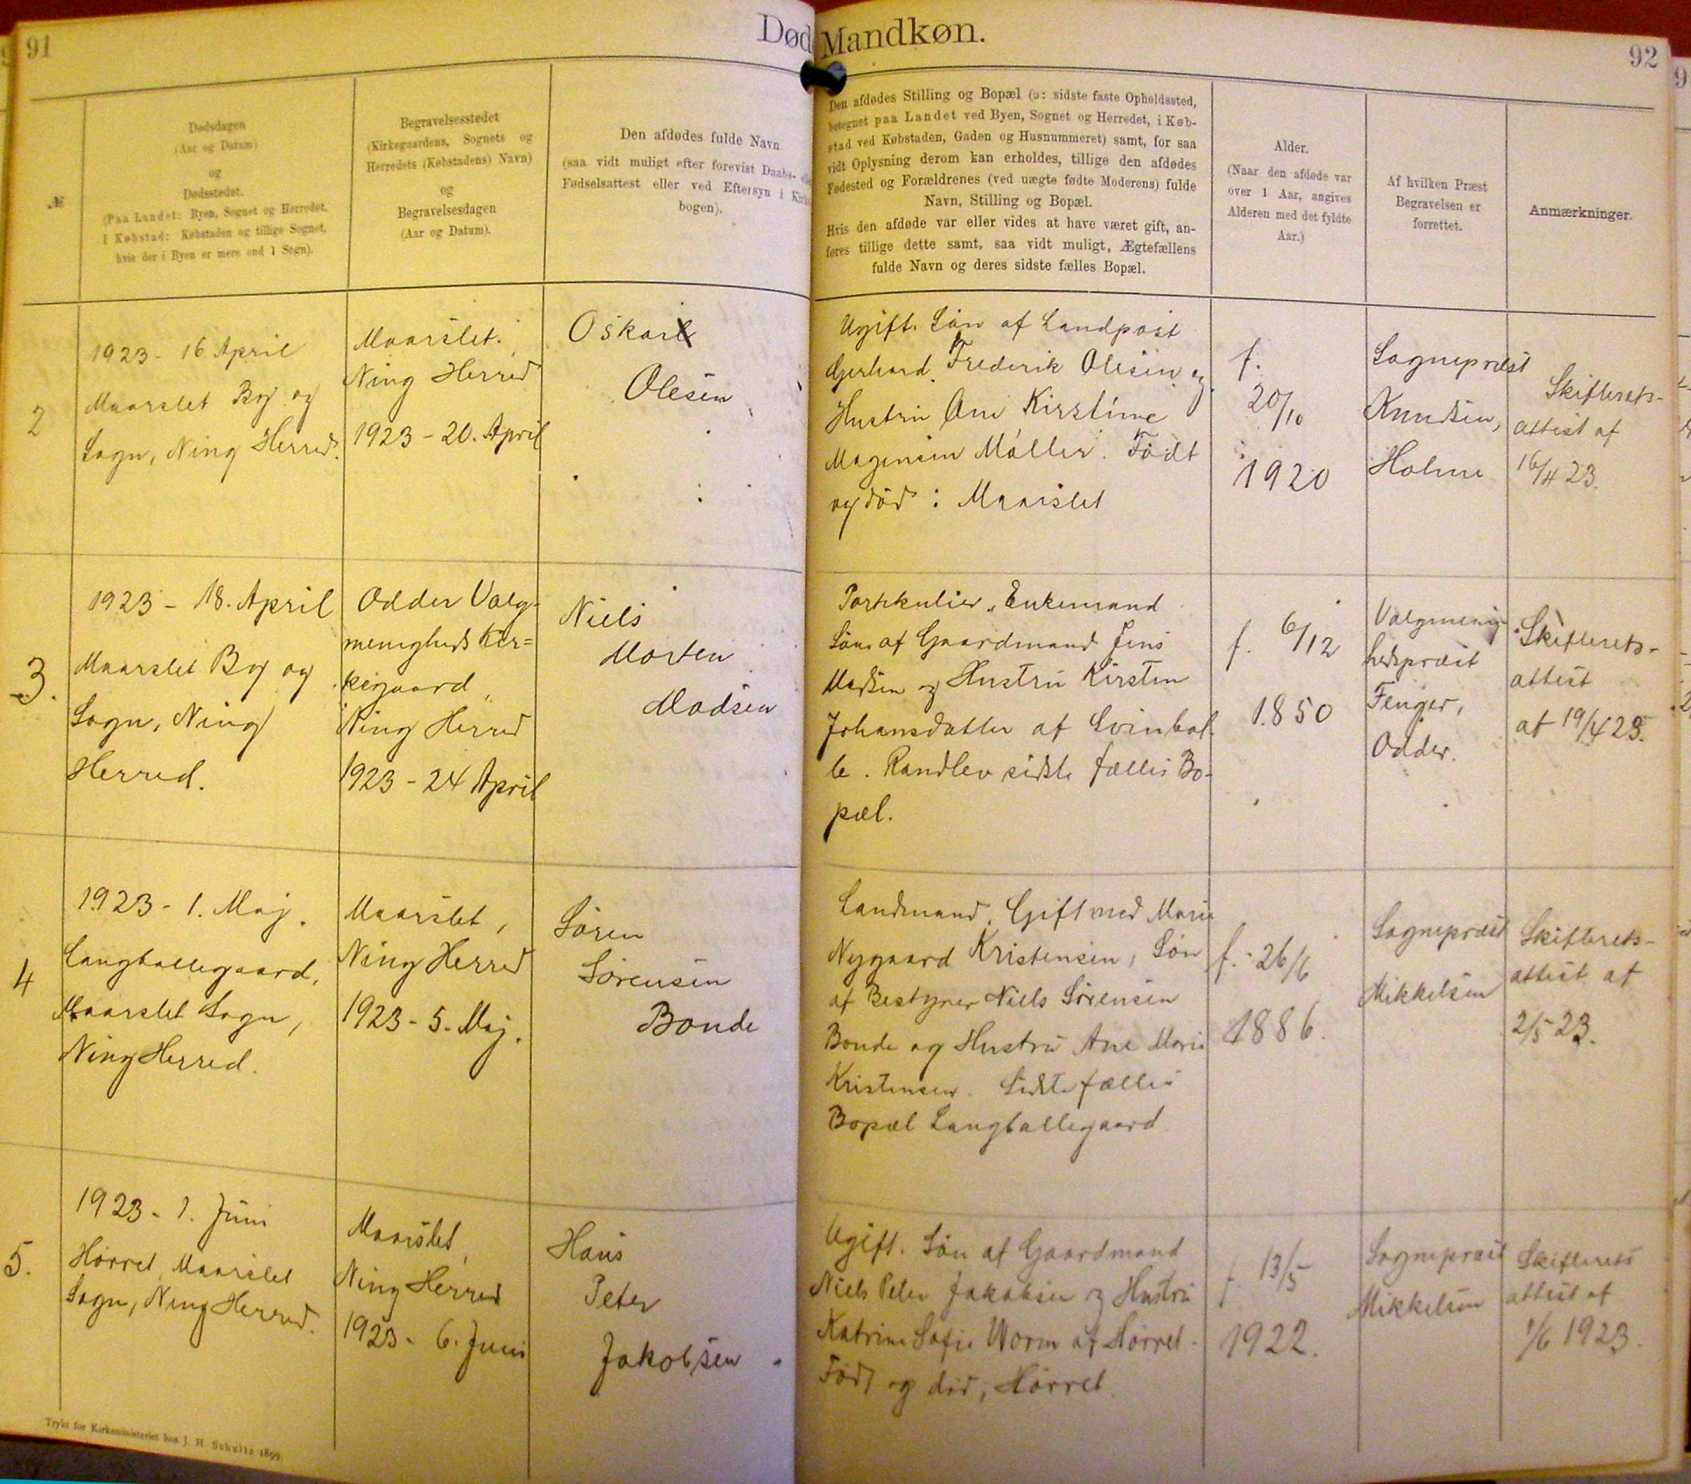 91
Død
Mandkøn.
92
№
Dødsdagen
(Aar og Datum)
og
Dødsstedet.
(Paa Landet: Byen, Sognet og Herredet,
i Købstad: Købstaden og tillige Sognet,
hvis der i Byen er mere end 1 Sogn).
Begravelsesstedet
(Kirkegaardens, Sognets og
Herredets (Købstadens) Navn)
og
Begravelsesdagen
(Aar og Datum).
Den afdødes fulde Navn
(saa vidt muligt efter forevist Daabs-
Fødselsattest eller ved Eftersyn i
bogen).
Den afdødes Stilling og Bopæl (ɔ: sidste faste Opholdssted,
betegnet paa Landet ved Byen, Sognet og Herredet, i Køb-
stad ved Købstaden, Gaden og Husnummeret) samt, for saa
vidt Oplysning derom kan erholdes, tillige den afdødes
Fødested og Forældrenes (ved uægte fødte Moderens) fulde
Navn, Stilling og Bopæl.
Hvis den afdøde var eller vides at have været gift, an-
føres tillige dette samt, saa vidt muligt, Ægtefællens
fulde Navn og deres sidste fælles Bopæl.
Alder.
(Naar den afdøde var
over 1 Aar, angives
Alderen med det fyldte
Aar.)
Af hvilken Præst
Begravelsen er
forrettet.
Anmærkninger.
2
1923 - 16 April
Maarslet By og
Sogn, Ning Herred.
Maarslet.
Ning Herred
1923 - 20. April
Oskar
Olesen
Ugift. Søn af Landpost
Gerhard Frederik Olesen og
Hustru Ane Kirstine
Mogensen Møller. Født
og død i Maarslet
f.
20/10
1920
Sognepræst
Knudsen,
Holme
Skifterets-
attest af
16/4 23.
3.
1923 - 18. April
Maarslet By og
Sogn, Ning
Herred.
Odder Valg-
menigheds Kir=
kegaard,
Ning Herred
1923 - 24 April
Niels
Morten
Madsen
Partikulier, Enkemand
Søn af Gaardmand Jens
Madsen og Hustru Kirsten
Johansdatter af Svinbal-
le. Randlev sidste fælles Bo-
pæl.
f. 6/12
1850
Valgmenig-
hedspræst
Fenger,
Odder.
Skifterets-
attest
af 19/4 23.
4
1923 - 1. Maj.
Langballegaard,
Maarslet Sogn,
Ning Herred.
Maarslet,
Ning Herred
1923 - 5. Maj.
Søren
Sørensen
Bonde
Landmand. Gift med Marie
Nygaard Kristensen, Søn
af Bestyrer Niels Sørensen
Bonde og Hustru Ane Marie
Kristensen. Sidste fælles
Bopæl Langballegaard
f. 26/6
1886.
Sognepræst
Mikkelsen
Skifterets-
attest af
2/5 23.
5.
1923 - 1. Juni
Hørret, Maarslet
Sogn, Ning Herred.
Maarslet,
Ning Herred
1923 - 6. Juni
Hans
Peter
Jakobsen
Ugift. Søn af Gaardmand
Niels Peter Jakobsen og Hustru
Katrine Sofie Worm af Hørret.
Født og død, Hørret.
f. 13/5
1922.
Sognepræst
Mikkelsen
Skifterets
attest af
1/6 1923.
Trykt for Kirkeministeriet hos J. H. Schultz 1899